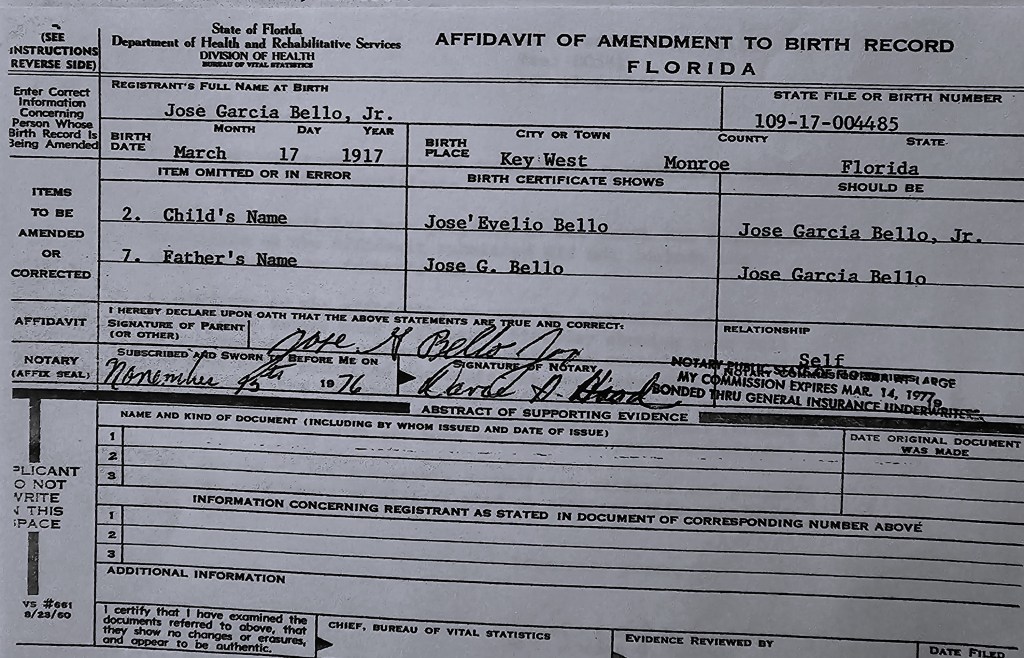 (SEE INSTRUCTIONS REVERSE SIDE)
State of Florida
Department of Health and Rehabilitative Services
DIVISION OF HEALTH
BUREAU OF VITAL STATISTICS
AFFIDAVIT OF AMENDMENT TO BIRTH RECORD
FLORIDA
Enter Correct
Information
Concerning
Person Whose
Birth Record Is
Being Amended
REGISTRANT'S FULL NAME AT BIRTH
Jose Garcia Bello, Jr.
STATE FILE OR BIRTH NUMBER
109-17-004485
BIRTH DATE
MONTH DAY YEAR
March 17 1917
BIRTH PLACE
CITY OR TOWN COUNTY STATE
Key West Monroe Florida
ITEMS
TO BE
AMENDED
OR
CORRECTED
ITEM OMITTED OR IN ERROR BIRTH CERTIFICATE SHOWS SHOULD BE
2. Child's Name Jose' Evelio Bello Jose Garcia Bello, Jr.
7. Father's Name Jose G. Bello Jose Garcia Bello
AFFIDAVIT
I HEREBY DECLARE UPON OATH THAT THE ABOVE STATEMENTS ARE TRUE AND CORRECT:
SIGNATURE OF PARENT
(OR OTHER)
Jose G Bello
RELATIONSHIP
Self
NOTARY
(AFFIX SEAL)
SUBSCRIBED AND SWORN TO BEFORE ME ON
November 1976
SIGNATURE OF NOTARY
NOTARY PUBLIC, STATE OF FLORIDA AT LARGE
MY COMMISSION EXPIRES MAR. 14, 1977
BONDED THRU GENERAL INSURANCE UNDERWRITERS
ABSTRACT OF SUPPORTING EVIDENCE
NAME AND KIND OF DOCUMENT (INCLUDING BY WHOM ISSUED AND DATE OF ISSUE)
DATE ORIGINAL DOCUMENT
WAS MADE
1
2
3
PLICANT
O NOT
WRITE
N THIS
SPACE
INFORMATION CONCERNING REGISTRANT AS STATED IN DOCUMENT OF CORRESPONDING NUMBER ABOVE
1
2
3
ADDITIONAL INFORMATION
VS #661
8/23/60
I certify that I have examined the
documents referred to above, that
they show no changes or erasures,
and appear to be authentic.
CHIEF, BUREAU OF VITAL STATISTICS
EVIDENCE REVIEWED BY
DATE FILED